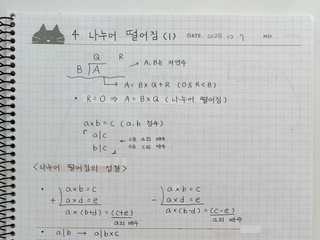 4 나누어 떨어짐 (1) DATE. 2025. 12. 7 NO.
Q R
B A A, B는 자연수
→ A = B×Q+R (0≤R<B)
• R=0 ⇒ A=B×Q (나누어 떨어짐)
a×b=c (a, b 정수)
a|c c는 a의 배수
b|c a,b는 c의 약수
<나누어 떨어짐의 성질>
• a×b=c a×b=c
+ a×d=e − a×d=e
a×(b+d)=(c+e) a×(b-d)=(c-e)
a의 배수 a의 배수
• a|b → a|b×c